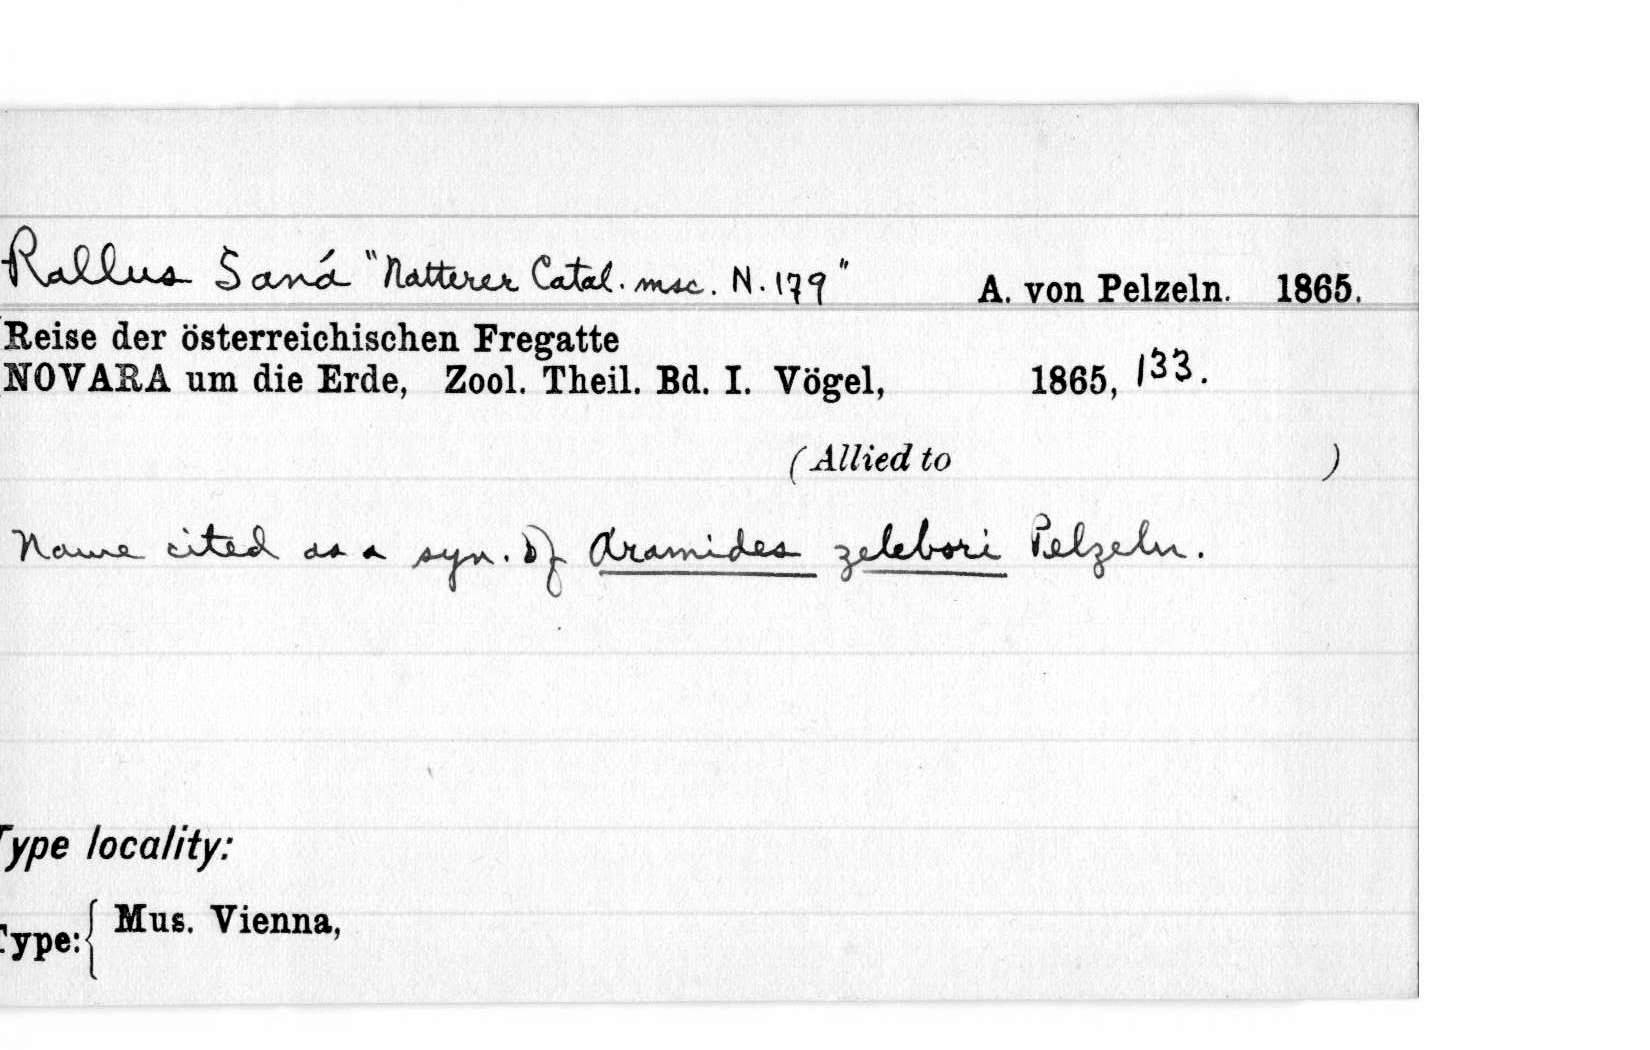 Rallus Saná "Natterer Catal. msc. N. 179" A. von Pelzeln. 1865.
Reise der österreichischen Fregatte
NOVARA um die Erde, Zool. Theil. Bd. I. Vögel, 1865, 133.
(Allied to )
Name cited as a syn. of Aramides zelebori Pelzeln.
Type locality:
Type: { Mus. Vienna,